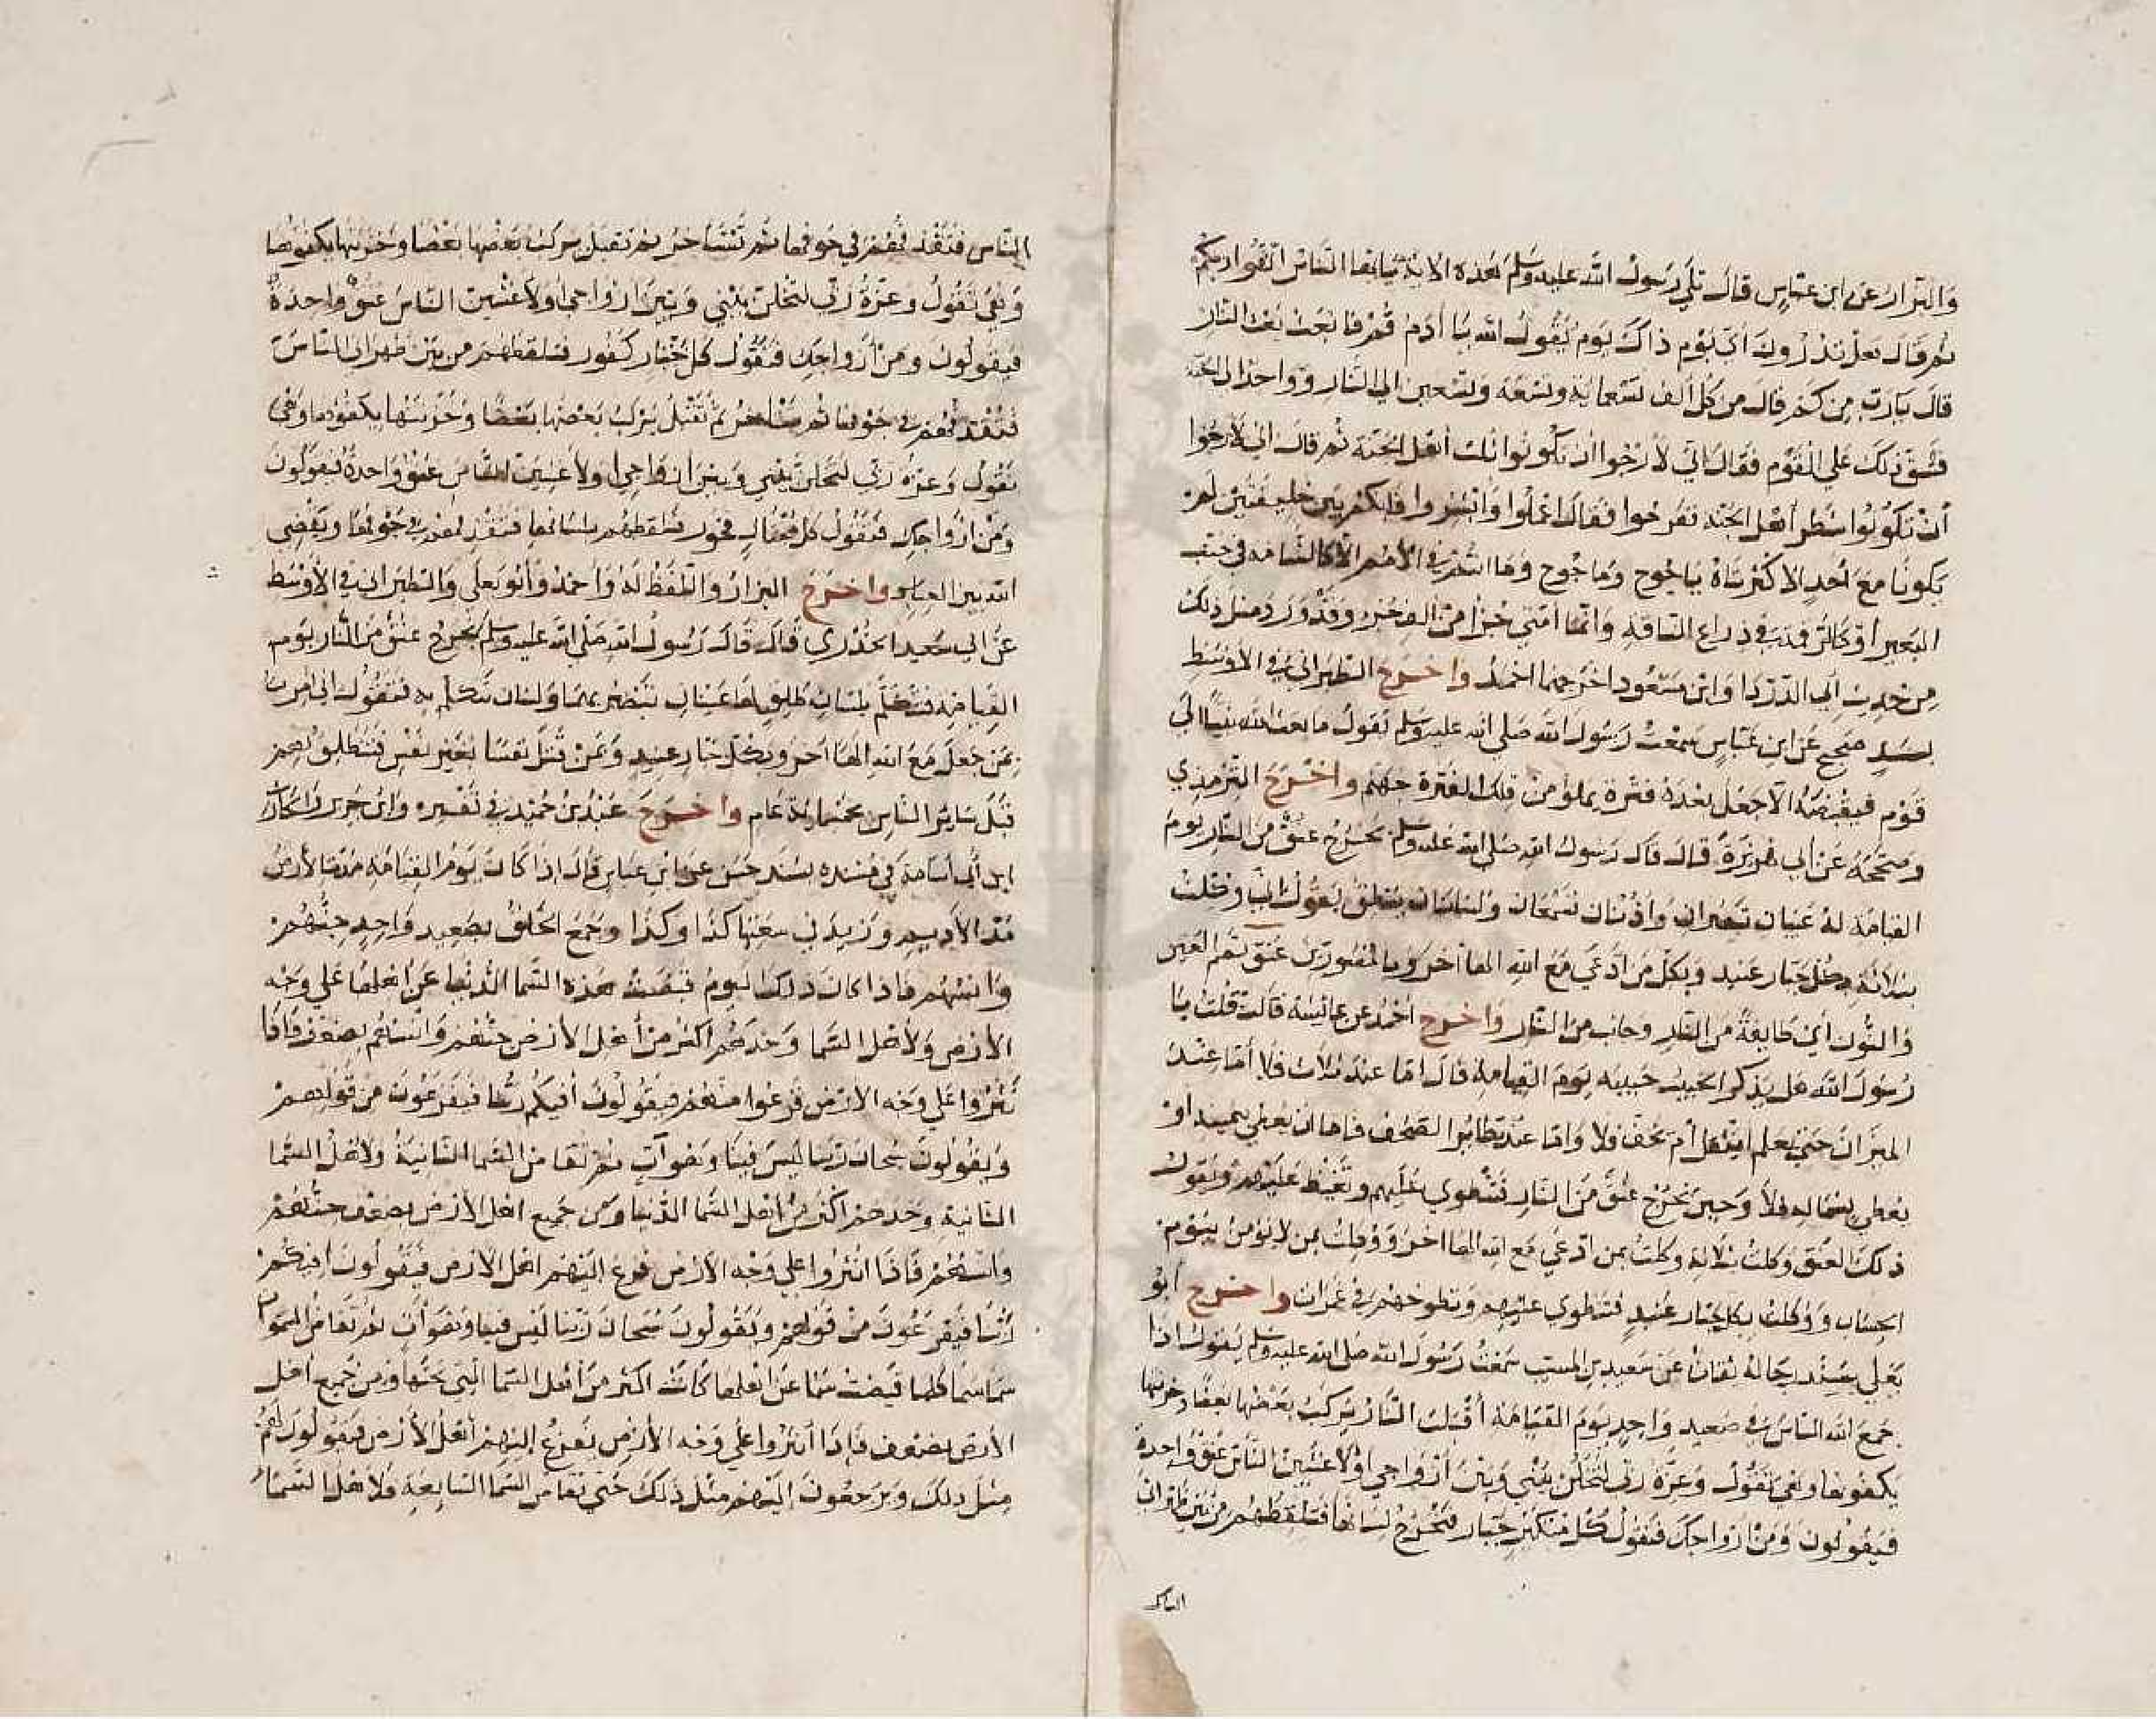 والبزار عن ابن عباس قال تلي رسول الله عليه وسلم هذه الاية يا يها الناس اتقوا ربكم
ثم قال هل تدرون اي يوم ذاك يوم يقول الله يا أدم قم فابعث بعث النار
قال يارب من كم قال من كل الف تسعماية وتسعة وتسعين الي النار وواحدا الي الجنة
فشق ذلك علي القوم فقال اني لا رجوا ان تكونوا ثلث أهل الجنة ثم قال اني لارجوا
أن تكونوا شطر أهل الجنة ففرحوا فقال اعملوا وابشروا فانكم بين خليقتين لم
يكونا مع أحد الا كثرتاه ياجوج وماجوج وما انتم في الامم الا كالشامه في جنب
البعير أو كالرقمة في ذراع الناقة وانما أمتي جزا من الف جزء وقد ورد مثل ذلك
من حديث ابي الدردا وابن مسعود اخرجهما احمد واخرج الطبراني في الاوسط
بسند صحيح عن ابن عباس سمعت رسول الله صلي الله عليه وسلم يقول ما بعث الله نبيا الي
قوم فيقبضه الا جعل بعده فترة يملؤ من تلك الفترة جهنم واخرج الترمذي
وصححه عن ابي هريرة قال قال رسول الله صلي الله عليه وسلم يخرج عنق من النار يوم
القيامة له عينان تبصران وأذنان تسمعان ولسان ينطق يقول اني وكلت
بثلاثة بكل جبار عنيد وبكل من ادعي مع الله الها أخر وبالمصورين عنق بضم العين
والنون أي طايفة من النار وجانب من النار واخرج احمد عن عايشة قالت قلت يا
رسول الله هل يذكر الحبيب حبيبه يوم القيامة قال اما عند ثلاث فلا أما عند
الميزان حتي يعلم ايثقل أم يخف فلا واما عند تطاير الصحف فاما ان يعطي بيمينه او
يعطي بشماله فلا وحين يخرج عنق من النار فتنطوي عليهم وتغيظ عليهم ويقول
ذلك العنق وكلت بثلاثة وكلت بمن ادعي مع الله الها اخر ووكلت بمن لا يؤمن بيوم
الحساب ووكلت بكل جبار عنيد فتنطوي عليهم وتطرحهم في غمرات واخرج أبو
يعلي بسند رجاله ثقات عن سعيد بن المسيب سمعت رسول الله صلي الله عليه وسلم يقول اذا
جمع الله الناس في صعيد واحد يوم القيامة أقبلت النار يركب بعضها بعضا وخزنتها
يكفونها وهي تقول وعزة ربي لتخلن بيني وبين أزواجي اولا غشين الناس عنق واحدة
فيقولون ومن ازواجك فتقول كل متكبر جبار فتخرج لسانها فتلتقطهم من بين ظهراني
الناس
الناس فتقذفهم في جوفها ثم تستاخر ثم تقبل يركب بعضها بعضا وخزنتها يكفونها
وهي تقول وعزة ربي لتخلن بيني وبين ازواجي اولا غشين الناس عنق واحدة
فيقولون ومن أزواجك فتقول كل ختار كفور فتلتقطهم من بين ظهراني الناس
فتقذفهم في جوفها ثم تستاخر ثم تقبل يركب بعضها بعضا وخزنتها يكفونها وهي
تقول وعزة ربي لتخلن بيني وبين ازواجي اولا غشين الناس عنق واحدة فيقولون
ومن ازواجك فتقول كل مختال فخور فتلتقطهم بلسانها فتقذفهم في جوفها ويقضي
الله بين العباد واخرج البزار واللفظ له وأحمد وأبو يعلي والطبراني في الأوسط
عن ابي سعيد الخدري قال قال رسول الله صلي الله عليه وسلم يخرج عنق من النار يوم
القيامة فتتكلم بلسان طليق لها عينان تبصر بهما ولسان تتكلم به فتقول اني امرت
بمن جعل مع الله الها آخر وبكل جبار عنيد وبمن قتل نفسا بغير نفس فتنطلق بهم
قبل سائر الناس بخمسماية عام واخرج عبد بن حميد في تفسيره وابن جرير والحارث
ابن أبي أسامة في مسنده بسند حسن عن ابن عباس قال اذا كان يوم القيامة مدت الأرض
مد الأديم وزيد في سعتها كذا وكذا وجمع الخلق بصعيد واحد جنهم
وانسهم فاذا كان ذلك اليوم قبضت هذه السما الدنيا عن اهلها علي وجه
الأرض ولأهل السما وحدهم أكثر من أهل الأرض جنهم وانسهم بضعف فاذا
نثروا علي وجه الارض فزعوا منهم فيقولون أفيكم ربنا فيفزعون من قولهم
ويقولون سبحان ربنا ليس فينا وهو آت ثم تقاض السما الثانية ولأهل السما
الثانية وحدهم اكثر من أهل السما الدنيا ومن جميع اهل الأرض بضعف جنهم
وانسهم فاذا انثروا علي وجه الأرض فزع اليهم اهل الارض فيقولون افيكم
ربنا فيفزعون من قولهم ويقولون سبحان ربنا ليس فينا وهو آت ثم تقاض السموات
سما سما كلما قيضت سما عن اهلها كانت اكثر من أهل السما التي تحتها ومن جميع اهل
الأرض بضعف فإذا أنثروا علي وجه الأرض يفزع إليهم أهل الأرض فيقولون لهم
مثل ذلك ويرجعون إليهم مثل ذلك حتي تقاض السما السابعة ولأهل السما